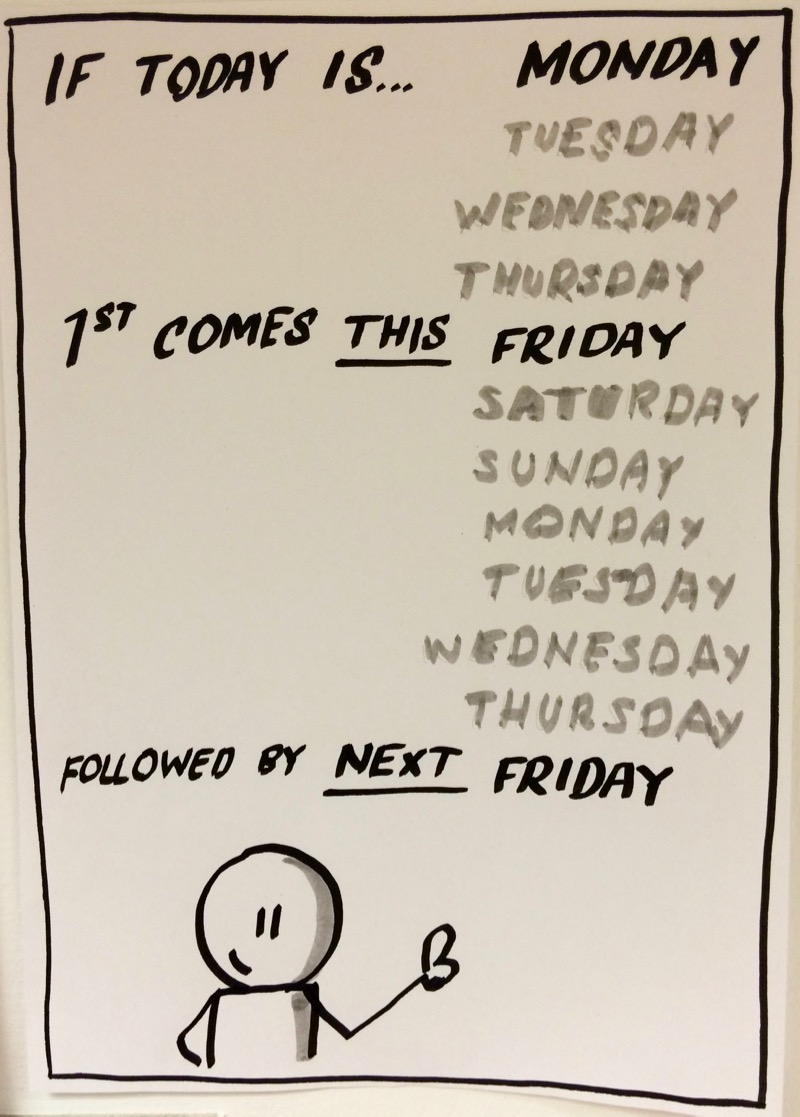 IF TODAY IS... MONDAY
TUESDAY
WEDNESDAY
THURSDAY
1ST COMES THIS FRIDAY
SATURDAY
SUNDAY
MONDAY
TUESDAY
WEDNESDAY
THURSDAY
FOLLOWED BY NEXT FRIDAY